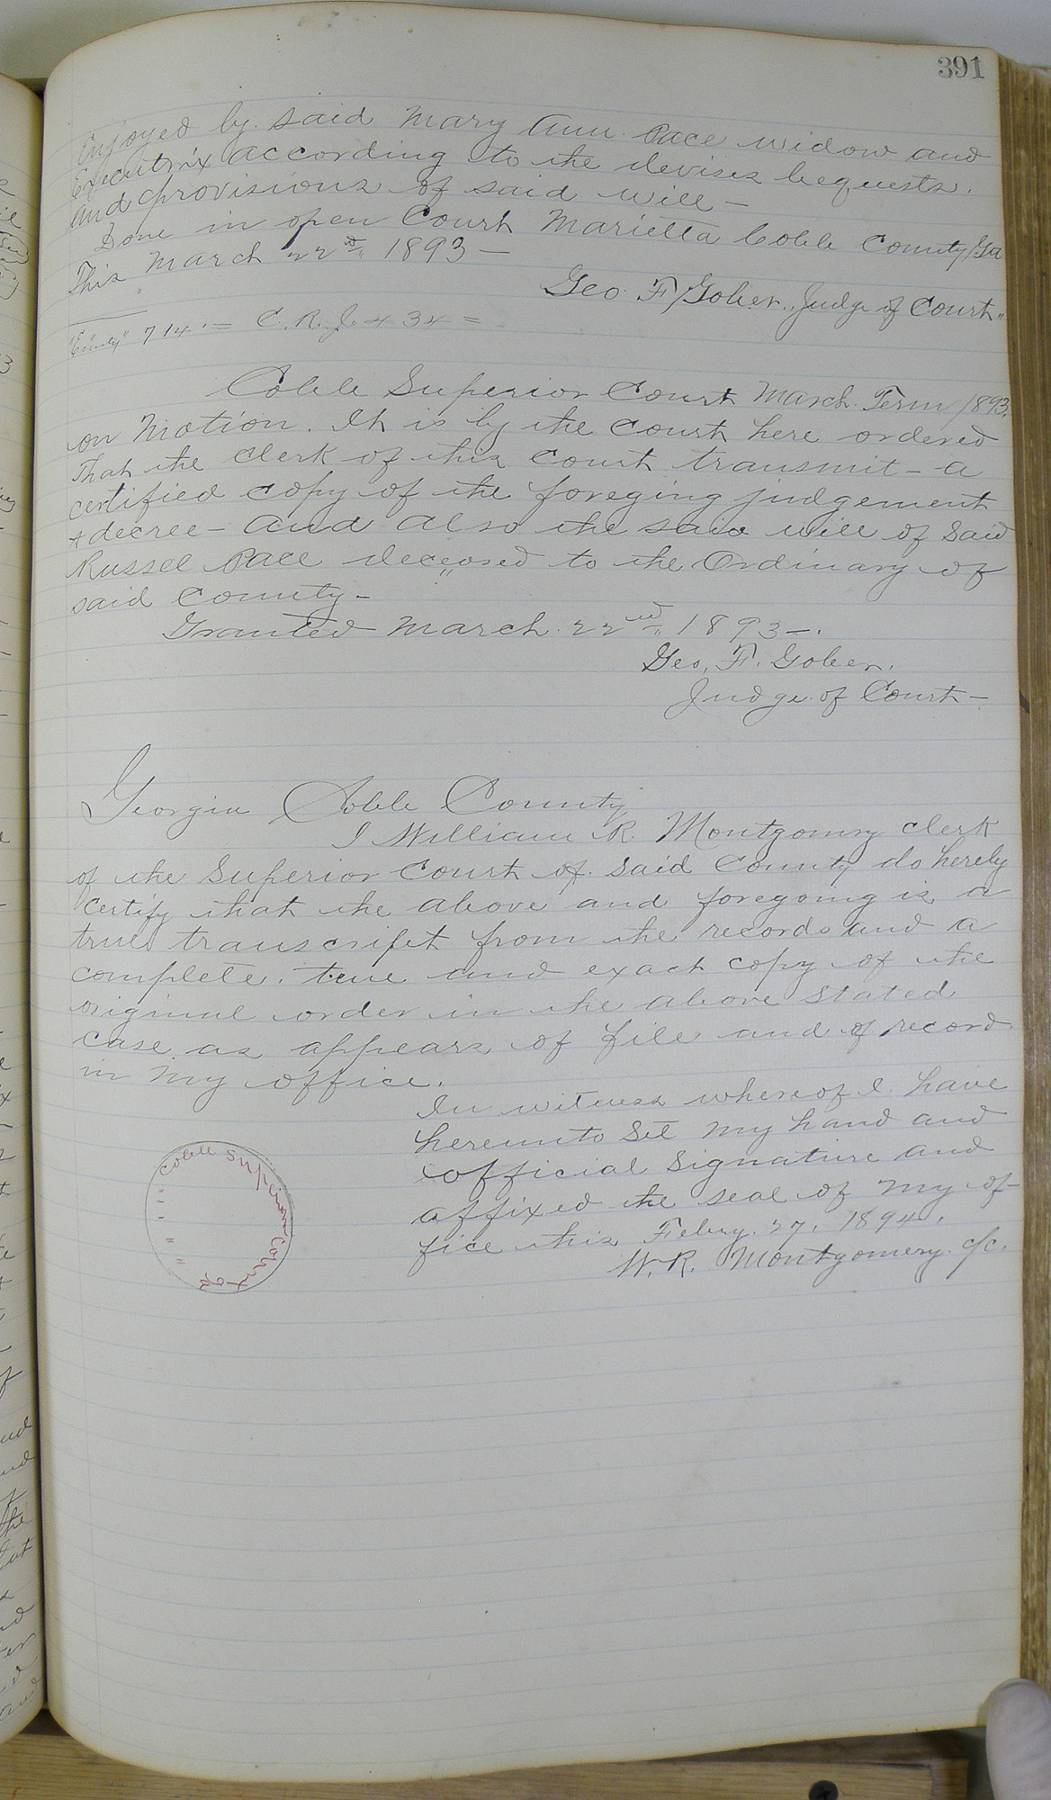 391
Enjoyed by said Mary Ann Pace widow and
Executrix according to the devises bequests.
and provisions of said will -
Done in open Court Marietta Cobb County Ga
This March 22nd 1893 -
Geo. F. Gober, Judge of Court.
"Equity" 714. = C. R. J. 434 =
Cobb Superior Court March Term 1893.
on Motion. It is by the Court here ordered
That the clerk of this Court transmit - a
certified copy of the foreging judgement
+ decree - and also the said will of said
Russel Pace deceased to the Ordinary of
said County -
Granted March 22nd 1893 -.
Geo. F. Gober.
Judge of Court -
Georgia Cobb County
I William R. Montgomry clerk
of the Superior Court of said County do hereby
certify that the above and foregoing is a
true transcript from the records and a
complete. true and exact copy of the
original order in the above stated
case as appears of file and of record
in my office.
In witness whereof I have
hereunto Set my hand and
official Signature and
affixed the seal of my of-
fice this Febuy. 27. 1894.
W. R. Montgomery c/c.
Cobb Superior Court Ga